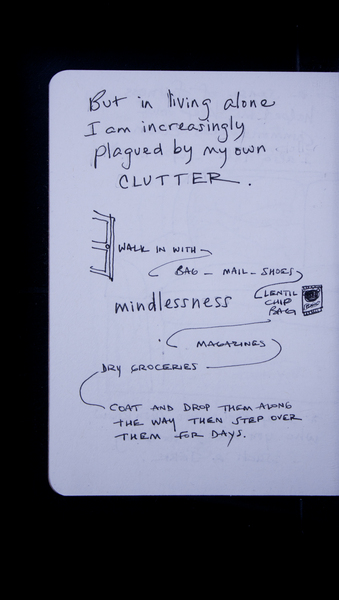 But in living alone
I am increasingly
plagued by my own
CLUTTER.
WALK IN WITH
BAG - MAIL - SHOES
LENTIL
CHIP
BAG
mindlessness
MAGAZINES
DRY GROCERIES
COAT AND DROP THEM ALONG
THE WAY THEN STEP OVER
THEM FOR DAYS.